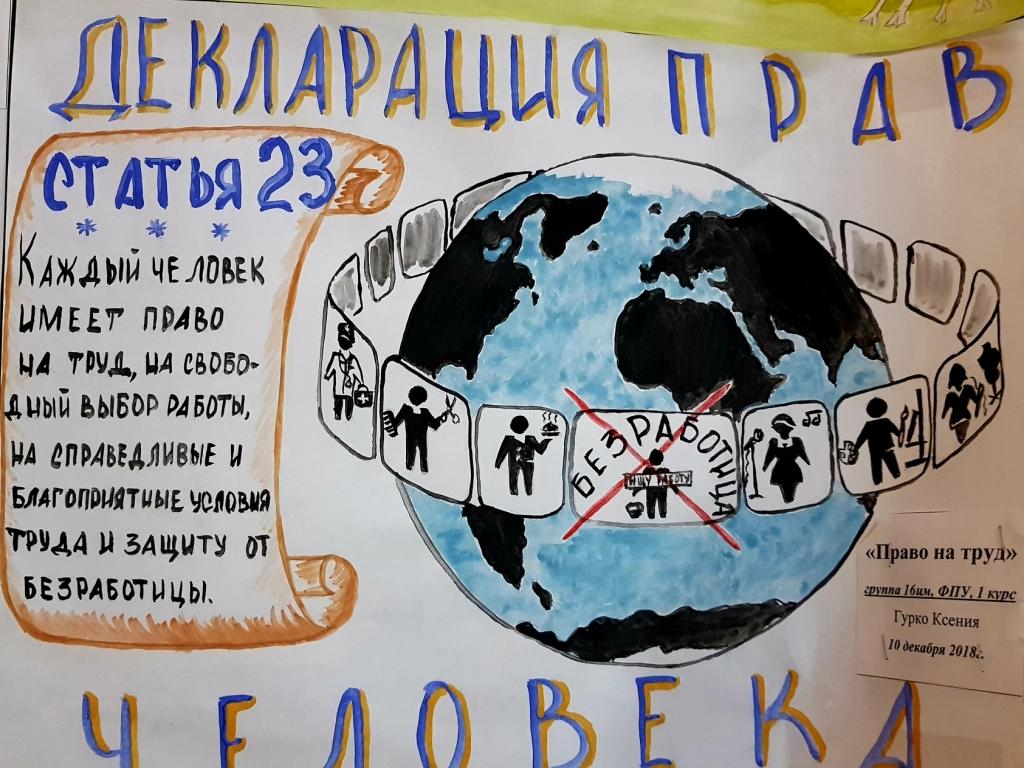 ДЕКЛАРАЦИЯ ПРАВ
СТАТЬЯ 23
КАЖДЫЙ ЧЕЛОВЕК
ИМЕЕТ ПРАВО
НА ТРУД, НА СВОБО-
ДНЫЙ ВЫБОР РАБОТЫ,
НА СПРАВЕДЛИВЫЕ И
БЛАГОПРИЯТНЫЕ УСЛОВИЯ
ТРУДА И ЗАЩИТУ ОТ
БЕЗРАБОТИЦЫ.
БЕЗРАБОТИЦА
ИЩУ РАБОТУ
«Право на труд»
группа 16им, ФПУ, 1 курс
Гурко Ксения
10 декабря 2018г.
ЧЕЛОВЕКА